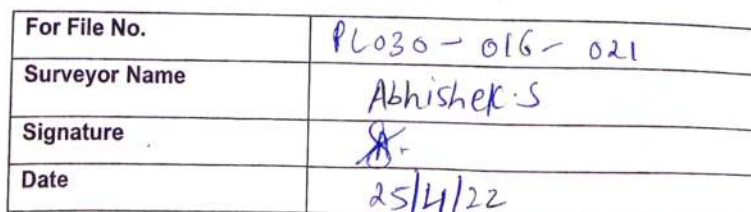 For File No. PL030 - 016 - 021
Surveyor Name Abhishek.S
Signature
Date 25/4/22